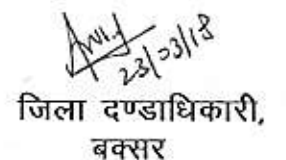 23/03/18
जिला दण्डाधिकारी,
बक्सर